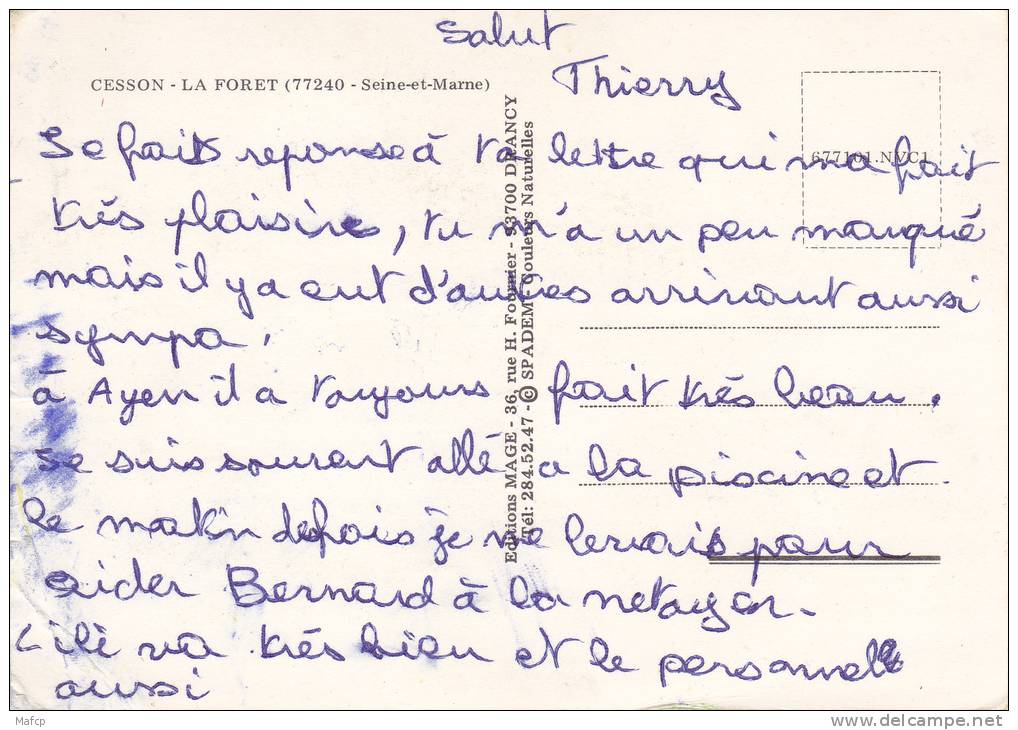 Salut
CESSON - LA FORET (77240 - Seine-et-Marne)
Thierry
677101.NVC1
Se fait reponse à ta lettre qui ma fait
trés plaisire, tu m'a un peu manqué
mais il y a eut d'autres arrivant aussi
sympa.
à Ayen il a toujours fait trés beau.
se suis souvent allé a la piscine et
le matin defois je me levais pour
aider Bernard à la netayer.
Lili va trés bien et le personnelle
aussi
Editions MAGE - 36, rue H. Fournier - 93700 DRANCY
Tél: 284.52.47 - © SPADEM - Couleurs Naturelles
Mafcp
delcampe.net